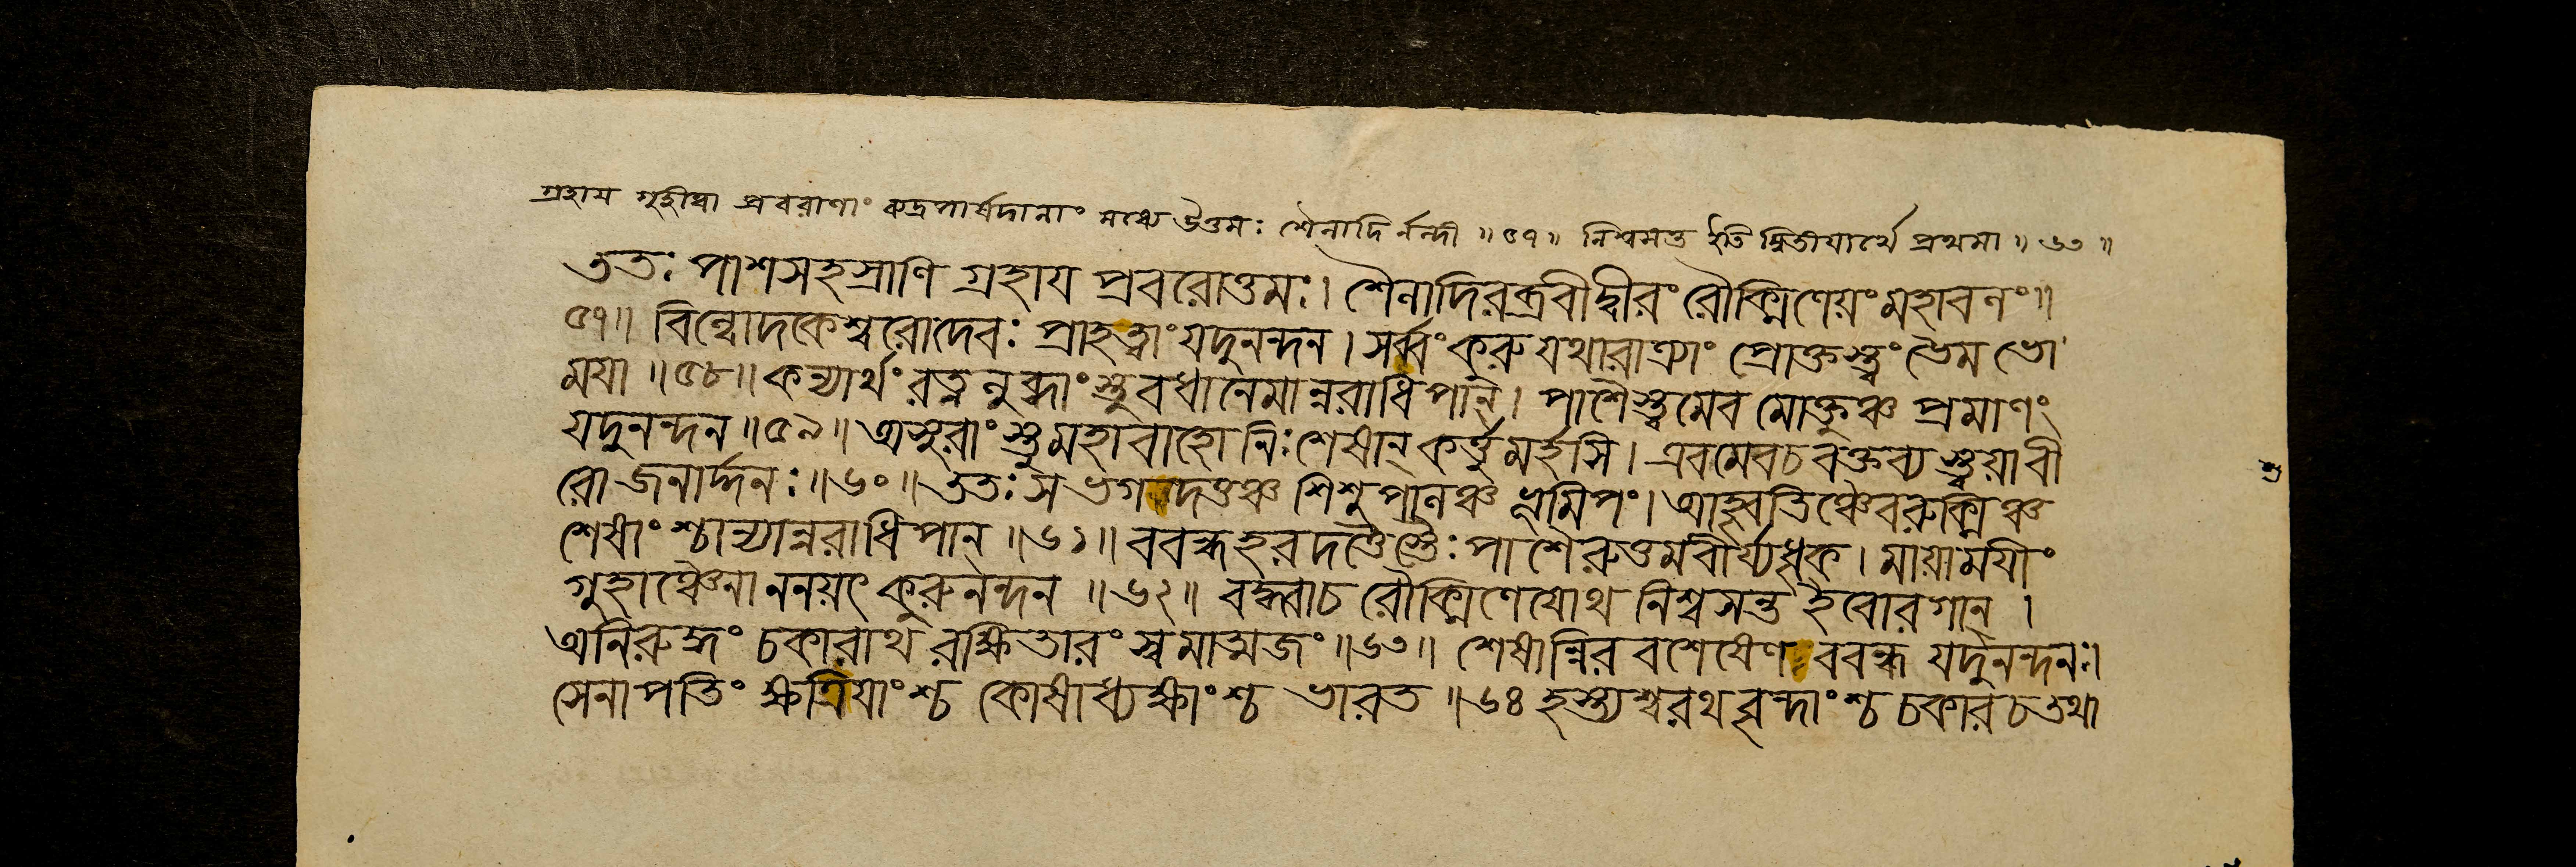 গ্রহায় গৃহীত্বা প্রবরাণাং রুদ্রপার্ষদানাং মধ্যে উত্তমঃ শৈনাদির্নন্দী ॥ ৫৭ ॥ নিশ্বসন্ত ইতি দ্বিতীয়ার্থে প্রথমা ॥ ৬৩ ॥
ততঃ পাশসহস্রাণি গ্রহায় প্রবরোত্তমঃ। শৈনাদিরব্রবীদ্বীরং রৌক্মিণেয়ং মহাবলং॥
৫৭॥ বিল্বোদকেশ্বরোদেবঃ প্রাহত্বাং যদুনন্দন। সর্ব্বং কুরু যথারাত্র্যাং প্রোক্তস্ত্বং ভৈম ভো
ময়া ॥৫৮॥ কন্যার্থং রত্নলুব্ধাংস্তু বধানেমান্নরাধিপান্। পাশৈস্ত্বমেব মোক্তুঞ্চ প্রমাণং
যদুনন্দন ॥৫৯॥ অসুরাংস্তু মহাবাহো নিঃশেষান্ কর্ত্তুমর্হসি। এবমেবচ বক্তব্যস্ত্বয়াবী
রো জনার্দ্দনঃ॥৬০॥ ততঃ স ভগদত্তঞ্চ শিশুপালঞ্চ ভূমিপঃ। আহ্বৃতিঞ্চৈব রুক্মিঞ্চ
শেষাংশ্চান্যান্নরাধিপান্ ॥৬১॥ ববন্ধ হরদত্তৈস্তৈঃ পাশৈরুত্তমবীর্য্যধৃক। মায়াময়ীং
গুহাঞ্চৈনাননয়ৎ কুরুনন্দন ॥৬২॥ বদ্ধ্বাচ রৌক্মিণেয়োথ নিশ্বসন্ত ইবোরগান্।
অনিরুদ্ধং চকারাথ রক্ষিতারং স্বমাত্মজং॥৬৩॥ শেষান্নিরবশেষেণ ববন্ধ যদুনন্দনঃ।
সেনাপতিং ক্ষত্রিয়াংশ্চ কোষাধ্যক্ষাংশ্চ ভারত ॥৬৪ হস্ত্যশ্বরথবৃন্দাংশ্চ চকার চ তথা